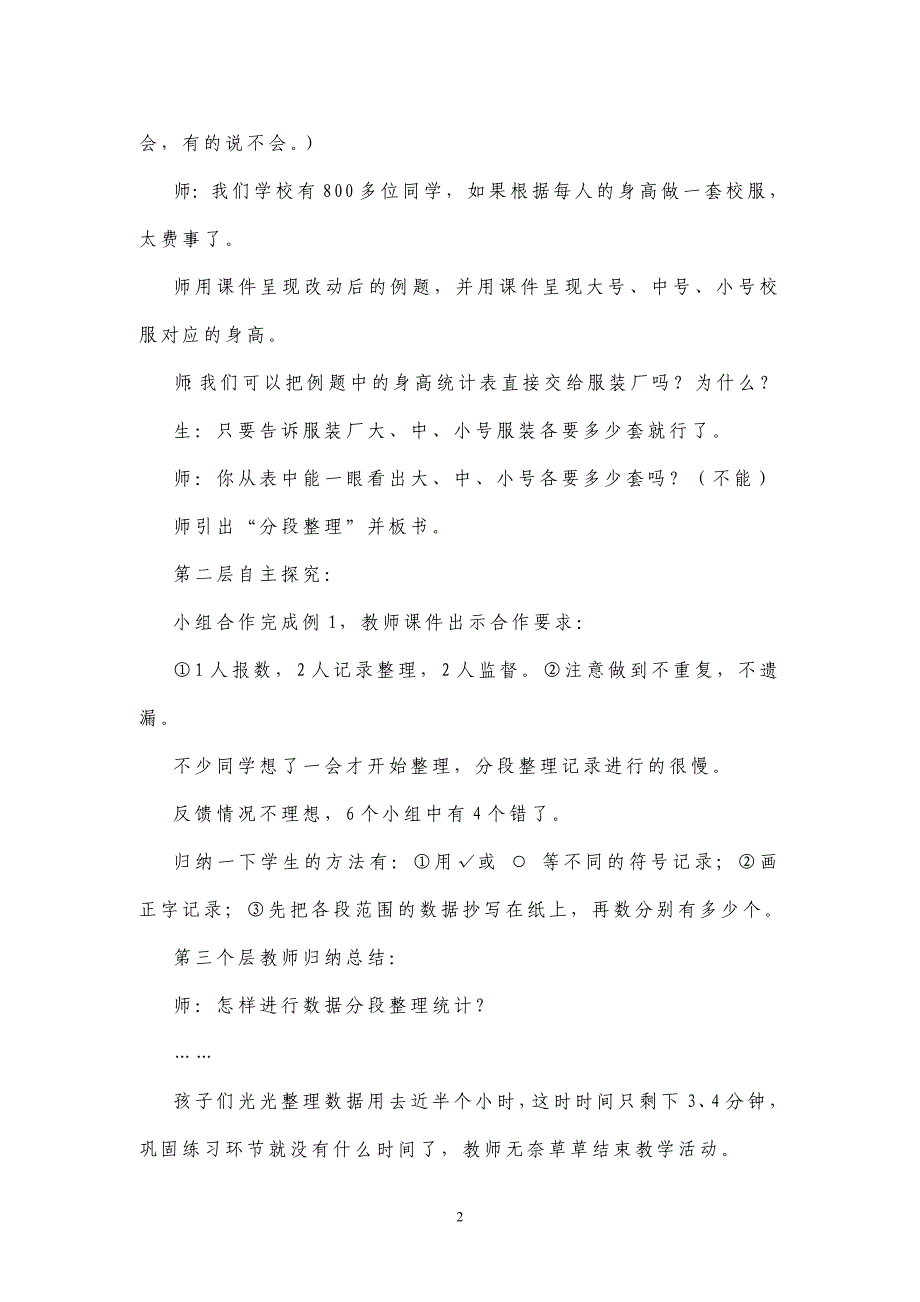 会，有的说不会。）
师：我们学校有800多位同学，如果根据每人的身高做一套校服，
太费事了。
师用课件呈现改动后的例题，并用课件呈现大号、中号、小号校
服对应的身高。
师：我们可以把例题中的身高统计表直接交给服装厂吗？为什么？
生：只要告诉服装厂大、中、小号服装各要多少套就行了。
师：你从表中能一眼看出大、中、小号各要多少套吗？（不能）
师引出“分段整理”并板书。
第二层自主探究：
小组合作完成例1，教师课件出示合作要求：
①1人报数，2人记录整理，2人监督。②注意做到不重复，不遗
漏。
不少同学想了一会才开始整理，分段整理记录进行的很慢。
反馈情况不理想，6个小组中有4个错了。
归纳一下学生的方法有：①用√或 ○ 等不同的符号记录；②画
正字记录；③先把各段范围的数据抄写在纸上，再数分别有多少个。
第三个层教师归纳总结：
师：怎样进行数据分段整理统计？
……
孩子们光光整理数据用去近半个小时，这时时间只剩下3、4分钟，
巩固练习环节就没有什么时间了，教师无奈草草结束教学活动。
2